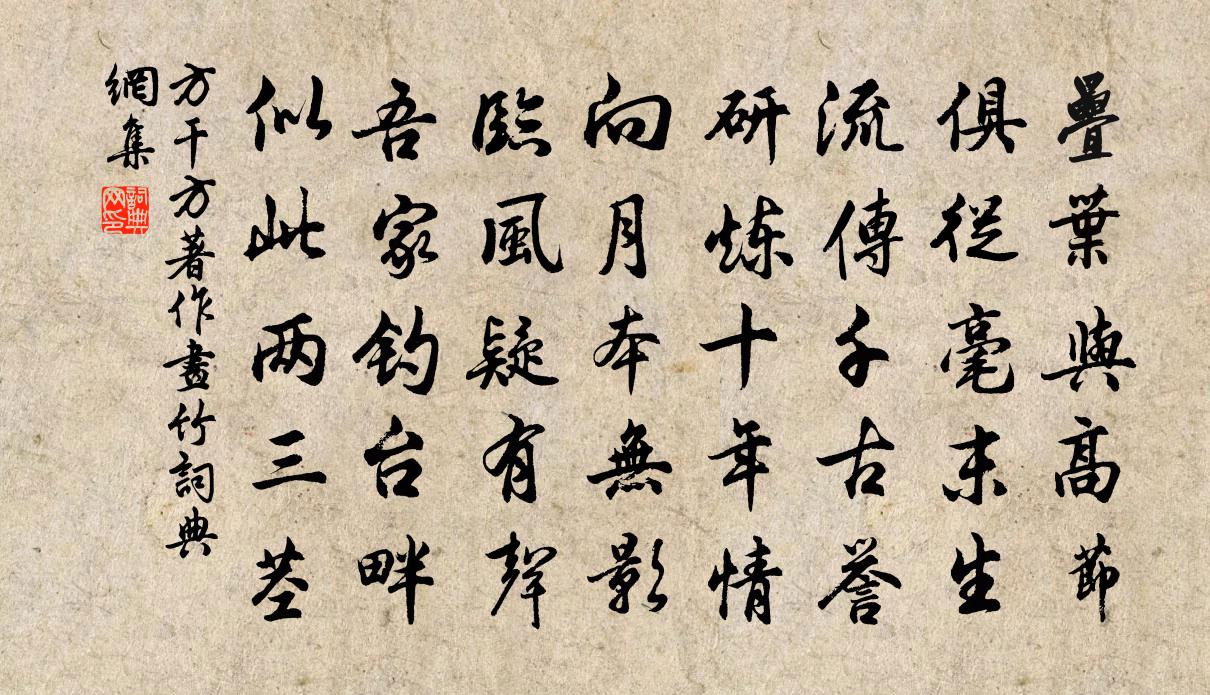 疊葉與高節
俱從毫末生
流傳千古譽
研炼十年情
向月本無影
臨風疑有聲
吾家钓台畔
似此两三茎
方干方著作畫竹詞典
網集
詞典
网印